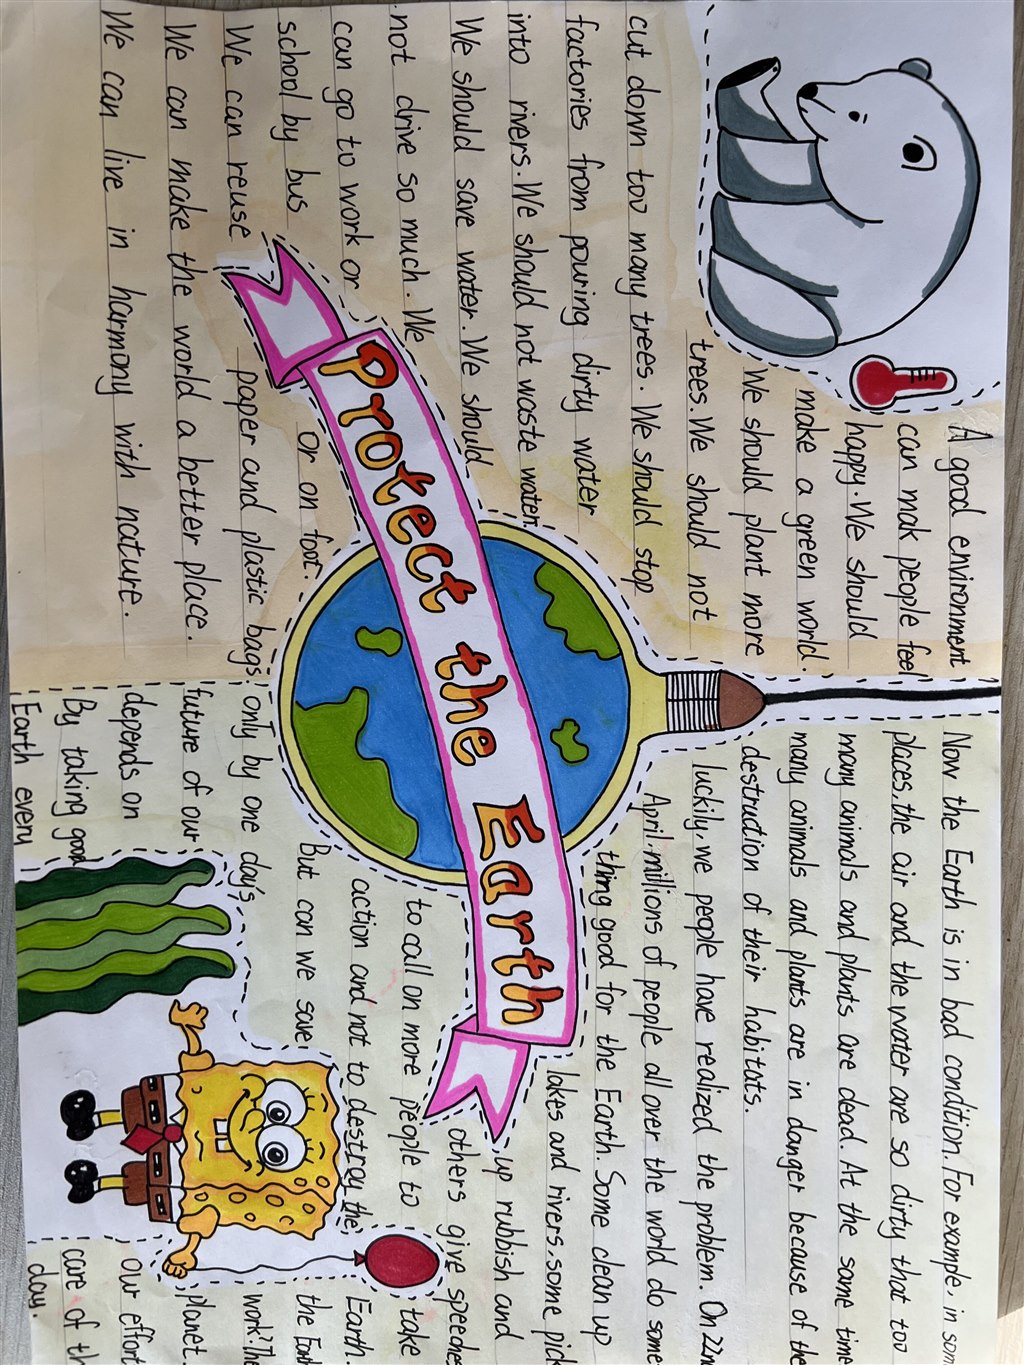 Protect the Earth
A good environment
can mak people feel
happy. We should
make a green world.
We should plant more
trees. We should not
cut down too many trees. We should stop
factories from pouring dirty water
into rivers. We should not waste water.
We should save water. We should
not drive so much. We
can go to work or
school by bus Or on foot.
We can reuse paper and plastic bags.
We can make the world a better place.
We can live in harmony with nature.
Now the Earth is in bad condition. For example, in som
places, the air and the water are so dirty that too
many animals and plants are dead. At the same time
many animals and plants are in danger because of the
destruction of their habitats.
luckily, we people have realized the problem. On 22n
April, millions of people all over the world do some
thing good for the Earth. Some clean up
lakes and rivers, some pick
up rubbish and
others give speeches
to call on more people to take
action and not to destroy the Earth.
But can we save the Earth
only by one day's work? The
future of our planet.
depends on our effort
By taking good care of th
Earth every day.